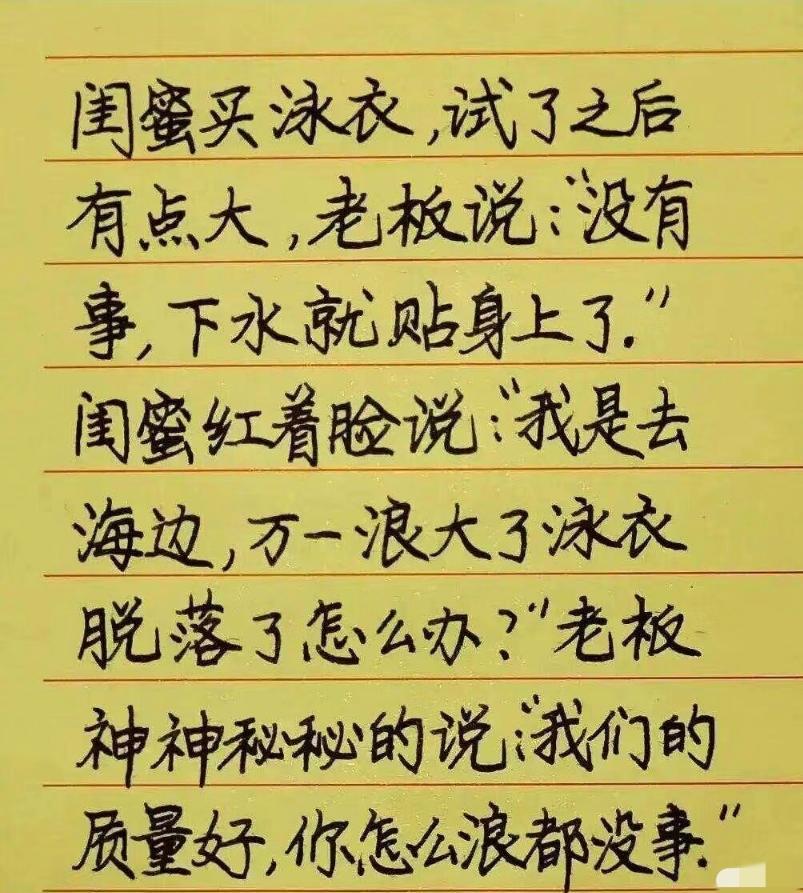 闺蜜买泳衣,试了之后
有点大,老板说:“没有
事,下水就贴身上了.”
闺蜜红着脸说:“我是去
海边,万一浪大了泳衣
脱落了怎么办?”老板
神神秘秘的说:“我们的
质量好,你怎么浪都没事.”